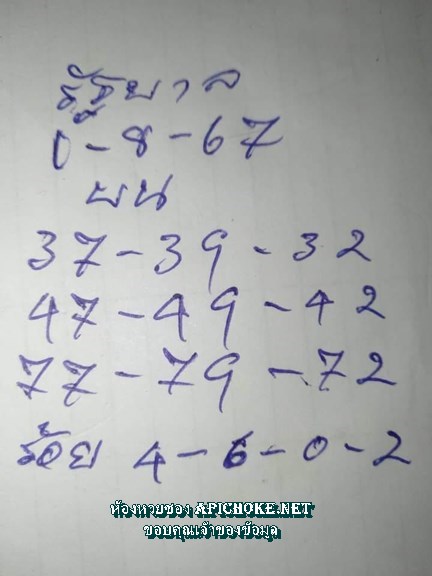 รัฐบาล
0-8-67
บน
37-39-32
47-49-42
77-79-72
ร้อย 4-6-0-2
ห้องหวยซอง APICHOKE.NET
ขอบคุณเจ้าของข้อมูล